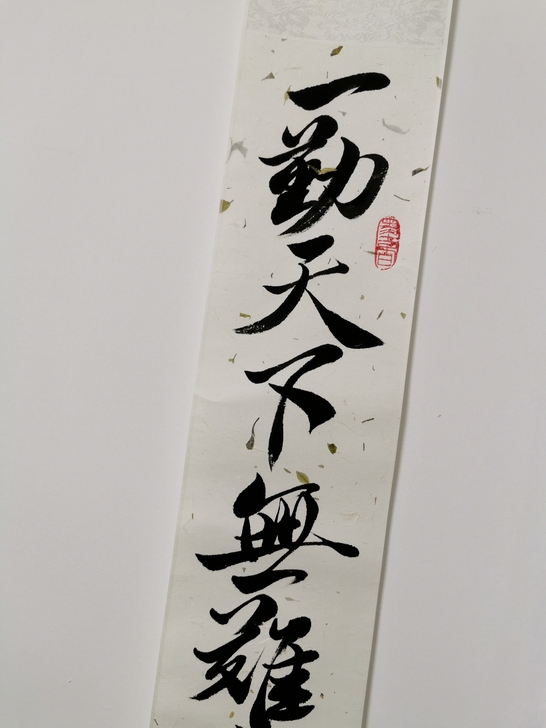 一勤天下無難